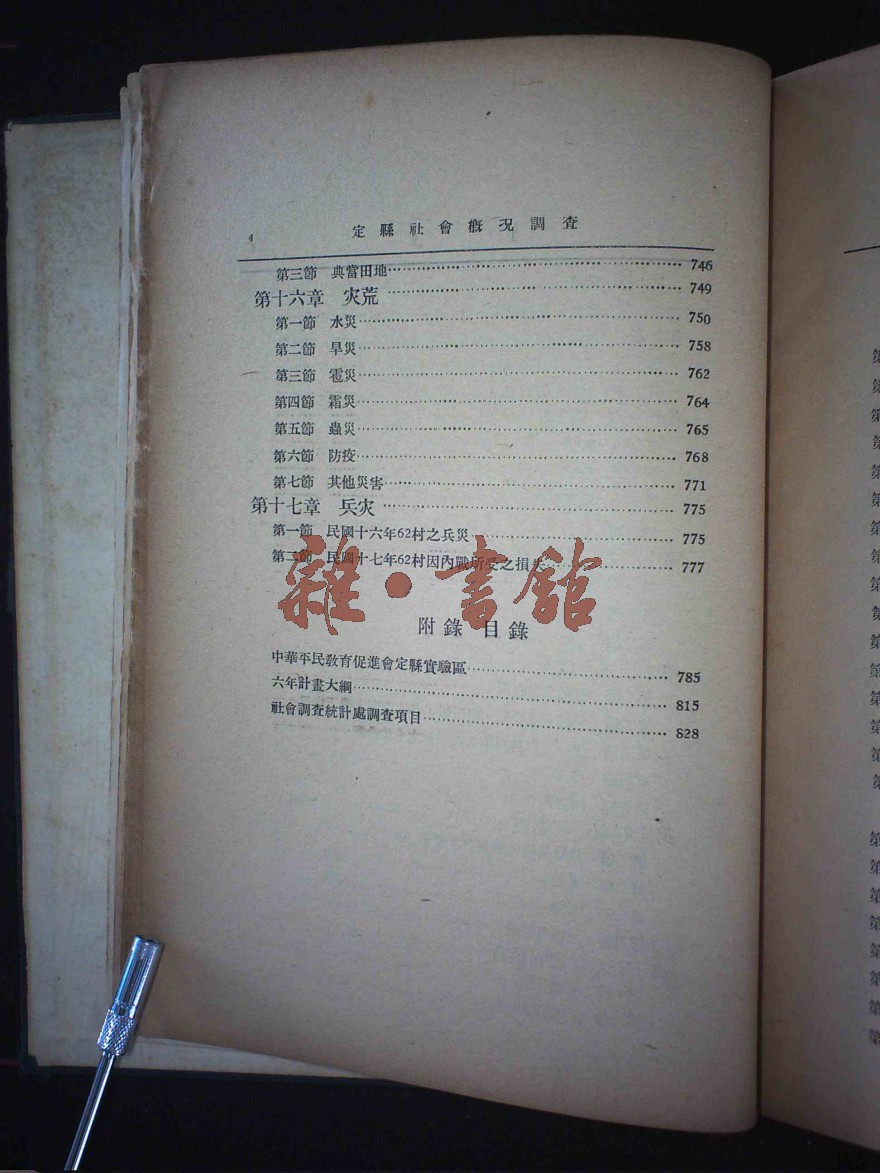 4 定縣社會概況調查
第三節 典當田地 746
第十六章 灾荒 749
第一節 水災 750
第二節 旱災 758
第三節 雹災 762
第四節 霜災 764
第五節 蟲災 765
第六節 防疫 768
第七節 其他災害 771
第十七章 兵灾 775
第一節 民國十六年62村之兵災 775
第二節 民國十七年62村因內戰所受之損失 777
雜·書舘
附錄目錄
中華平民敎育促進會定縣實驗區 785
六年計畫大綱 815
社會調查統計處調查項目 828